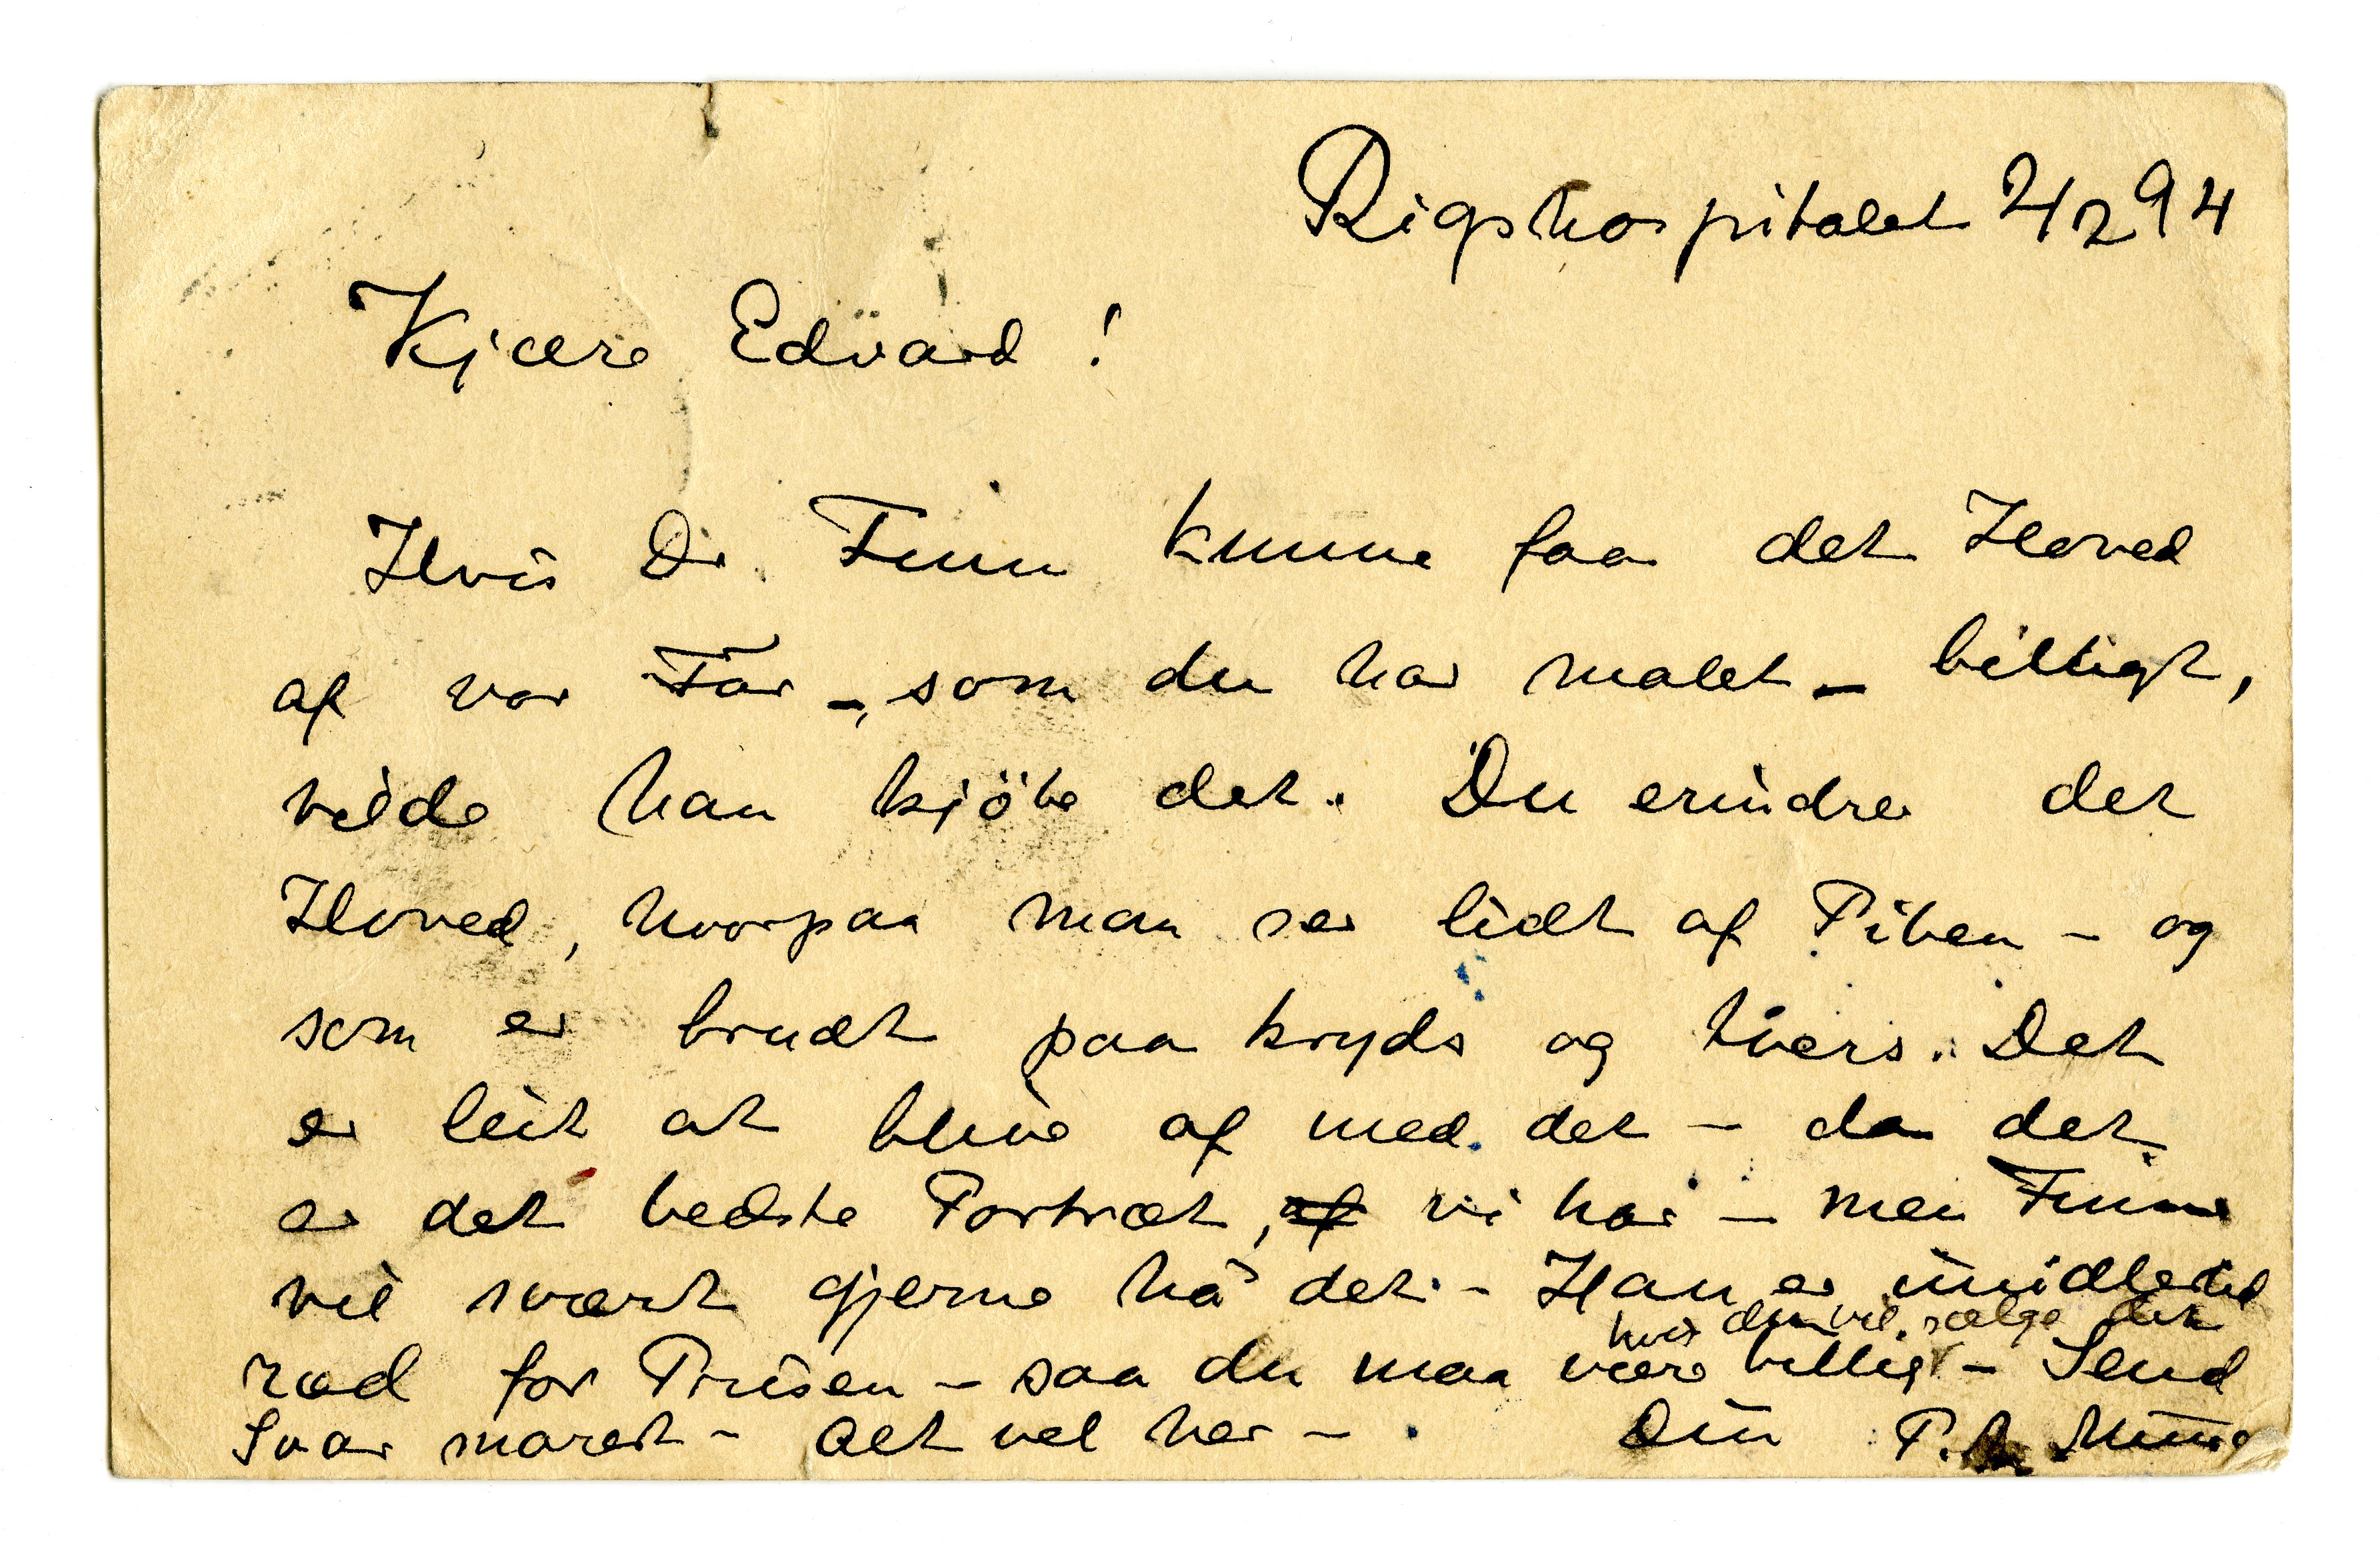 Rigshospitalet 4/12 94
Kjære Edvard!
Hvis Dr. Finne kunne faa det Hoved
af vor Far -, som du har malet - billigt,
vilde han kjöbe det. Du erindrer det
Hoved, hvorpaa man ser lidt af Piben - og
som er brudt paa kryds og tvers. Det
er leit at blive af med det - da det
er det bedste Portræt, af vi har - men Finne
vil svært gjerne ha det - Han er imidlertid
hvis du vil sælge det
ræd for Prisen - saa du maa være billig - Send
Svar snarest - Alt vel her - Din P. A. Munch